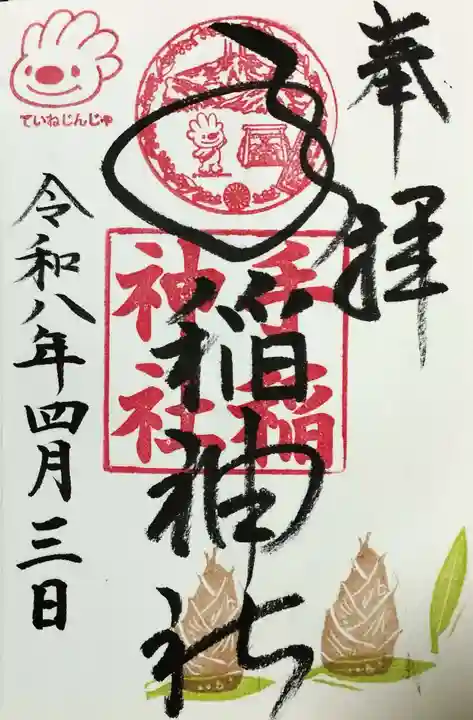 奉拝
手稲神社
手稲神社
ていねじんじゃ
令和八年四月三日